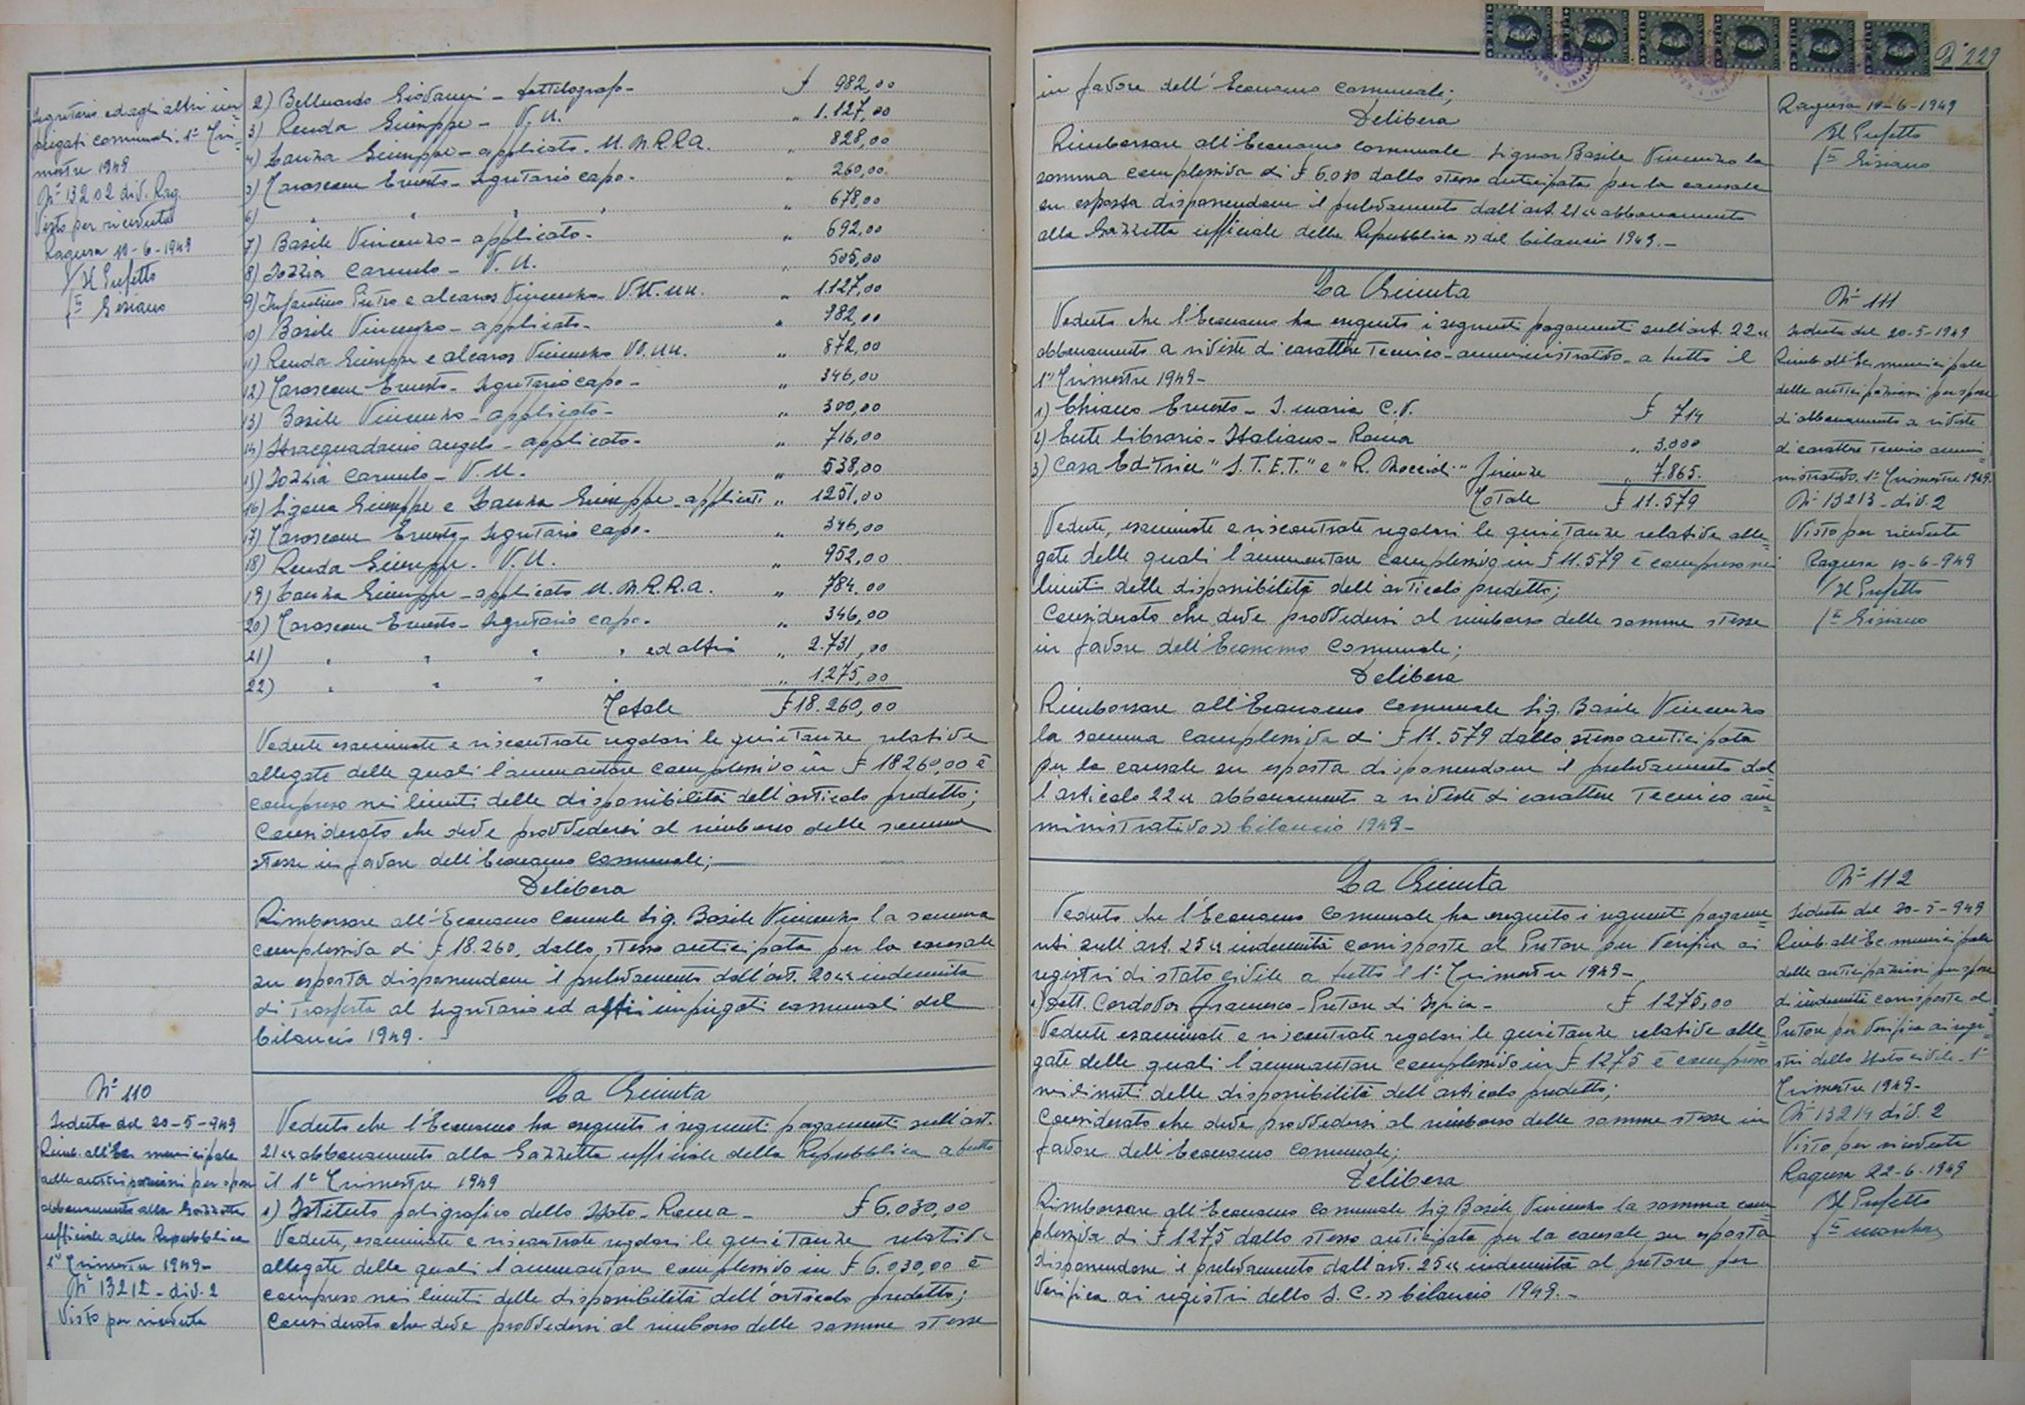 Segretario ed agli altri im=
piegati comunali. 1° Tri=
mestre 1949
N° 13202 div. Rag.
Visto per ricevuta
Ragusa 10-6-1949
Il Prefetto
2) Belluardo Giovanni - dattilografo - £ 982,00
3) Renda Giuseppe - V. U. " 1.127,00
4) Lauria Giuseppe - applicato - U.N.R.R.A. " 828,00
5) Ernesto - Segretario capo - " 260,00
6) " " " " 678,00
7) Basile Vincenzo - applicato - " 692,00
8) Iozzia Carmelo - V. U. " 505,00
9) Pietro e Vincenzo - VV.UU. " 1.127,00
10) Basile Vincenzo - applicato - " 982,00
11) Renda Giuseppe e Vincenzo VV.UU. " 872,00
12) Ernesto - Segretario capo - " 346,00
13) Basile Vincenzo - applicato - " 300,00
14) Stracquadanio Angelo - applicato - " 716,00
15) Iozzia Carmelo - V. U. " 538,00
16) Giuseppe e Giuseppe - applicati " 1251,00
17) Ernesto - Segretario capo - " 346,00
18) Renda Giuseppe - V. U. " 952,00
19) Giuseppe - applicato U.N.R.R.A. " 784,00
20) Ernesto - Segretario capo - " 346,00
21) " " " " ed altri " 2.731,00
22) " " " " " 1.275,00
Totale £ 18.260,00
Vedute esaminate e riscontrate regolari le quietanze relative
allegate delle quali l'ammontare complessivo in £ 18260,00 è
compreso nei limiti delle disponibilità dell'articolo predetto;
Considerato che deve provvedersi al rimborso delle somme
stesse in favore dell'Economo Comunale;
Delibera
Rimborsare all'Economo Comunale Sig. Basile Vincenzo la somma
complessiva di £ 18.260, dallo stesso anticipata per la causale
su esposta disponendone il prelevamento dall'art. 20 « indennità
di trasferta al Segretario ed altri impiegati comunali del
bilancio 1949.
N° 110
Seduta del 20-5-949
Rimb. all'Ec. municipale
delle anticipazioni per spese
abbonamento alla Gazzetta
ufficiale della Repubblica
1° Trimestre 1949-
N° 13212 - div. 2
Visto per ricevuta
La Giunta
Veduto che l'Economo ha eseguito i seguenti pagamenti sull'art.
21 « abbonamento alla Gazzetta ufficiale della Repubblica a tutto
il 1° Trimestre 1949
1) Istituto poligrafico dello Stato - Roma - £ 6.030,00
Vedute, esaminate e riscontrate regolari le quietanze relative
allegate delle quali l'ammontare complessivo in £ 6.030,00 è
compreso nei limiti delle disponibilità dell'articolo predetto;
Considerato che deve provvedersi al rimborso delle somme stesse
N° 229
in favore dell'Economo comunale;
Delibera
Rimborsare all'Economo comunale Signor Basile Vincenzo la
somma complessiva di £ 6.030 dallo stesso anticipata per la causale
su esposta disponendone il prelevamento dall'art. 21 « abbonamento
alla Gazzetta ufficiale della Repubblica » del bilancio 1949.-
Ragusa 10-6-1949
Il Prefetto
La Giunta
Veduto che l'Economo ha eseguito i seguenti pagamenti sull'art. 22 «
abbonamento a riviste di carattere tecnico-amministrativo - a tutto il
1° Trimestre 1949-
1) Ernesto - S. Maria C. V. £ 714
2) Ente librario - Italiano - Roma " 3.000
3) Casa Editrice "S.T.E.T." e "R. Noccioli" Firenze " 7.865.
Totale £ 11.579
Vedute, esaminate e riscontrate regolari le quietanze relative alle=
gate delle quali l'ammontare complessivo in £ 11.579 è compreso nei
limiti delle disponibilità dell'articolo predetto;
Considerato che deve provvedersi al rimborso delle somme stesse
in favore dell'Economo Comunale;
Delibera
Rimborsare all'Economo Comunale Sig. Basile Vincenzo
la somma complessiva di £ 11.579 dallo stesso anticipata
per la causale su esposta disponendone il prelevamento dal=
l'articolo 22 « abbonamento a riviste di carattere tecnico am=
ministrativo » bilancio 1949-
N° 111
Seduta del 20-5-1949
Rimb. all'Ec. municipale
delle anticipazioni per spese
d'abbonamento a riviste
di carattere tecnico ammi=
nistrativo. 1° Trimestre 1949.
N° 13213 - div. 2
Visto per ricevuta
Ragusa 10-6-949
Il Prefetto
La Giunta
Veduto che l'Economo comunale ha eseguito i seguenti pagame=
nti sull'art. 25 « indennità corrisposte al Pretore per verifica ai
registri di stato civile a tutto il 1° Trimestre 1949-
1) Dott. Cordova Francesco - Pretore di Ispica - £ 1275,00
Vedute esaminate e riscontrate regolari le quietanze relative alle=
gate delle quali l'ammontare complessivo in £ 1275 è compreso
nei limiti delle disponibilità dell'articolo predetto;
Considerato che deve provvedersi al rimborso delle somme stesse in
favore dell'Economo comunale;
Delibera
Rimborsare all'Economo comunale Sig. Basile Vincenzo la somma com=
plessiva di £ 1275 dallo stesso anticipata per la causale su esposta
disponendone il prelevamento dall'art. 25 « indennità al pretore per
verifica ai registri dello S. C. » bilancio 1949.-
N° 112
Seduta del 20-5-949
Rimb. all'Ec. municipale
delle anticipazioni per spese
di indennità corrisposte al
Pretore per verifica ai regi=
stri dello Stato civile - 1°
Trimestre 1949-
N° 13214 div. 2
Visto per ricevuta
Ragusa 22-6-1949
Il Prefetto